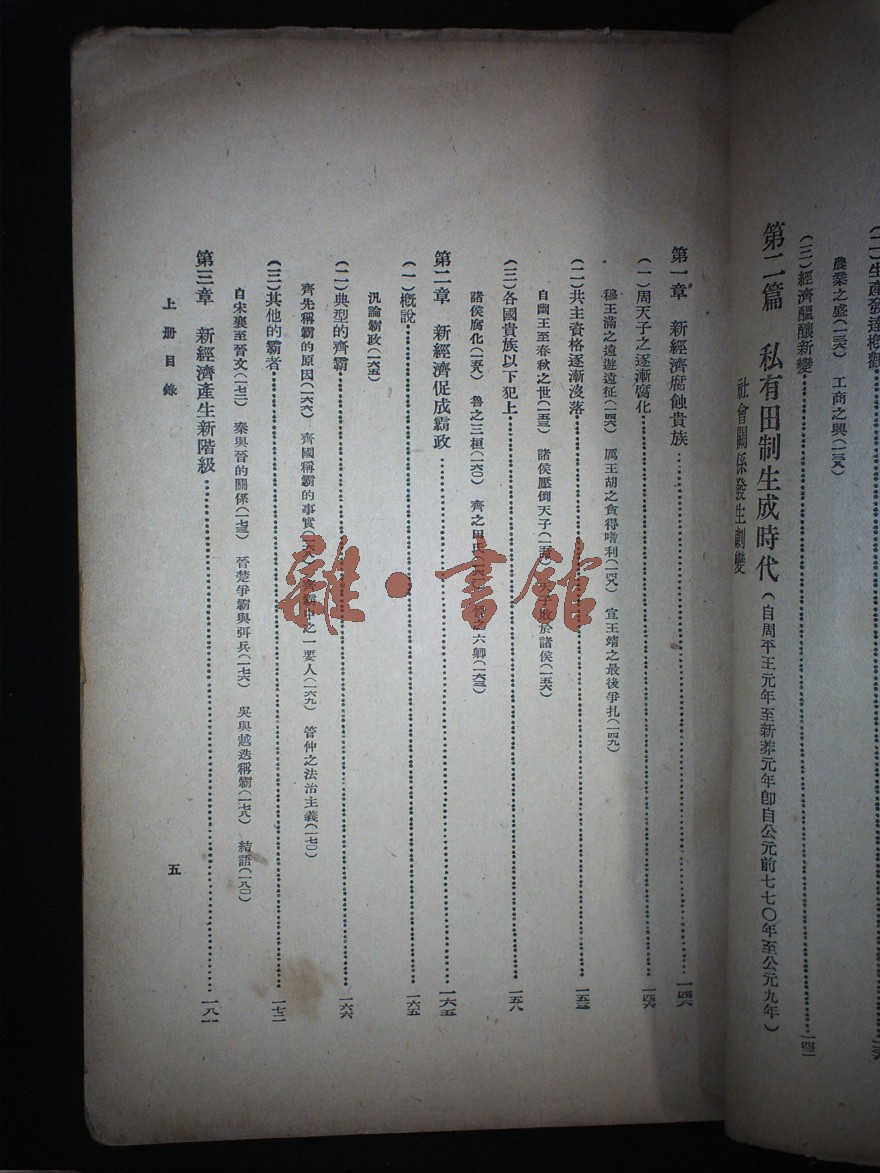 農業之盛(一三六) 工商之興(一三八)
(三)經濟醞釀新變 一四二
第二篇 私有田制生成時代(自周平王元年至新莽元年卽自公元前七七〇年至公元九年)
社會關係發生劇變
第一章 新經濟腐蝕貴族 一四六
(一)周天子之逐漸腐化 一四六
穆王滿之遠遊遠征(一四六) 厲王胡之貪得嗜利(一四八) 宣王靖之最後爭扎(一四九)
(二)共主資格逐漸沒落 一五三
自幽王至春秋之世(一五三) 諸侯壓倒天子(一五四) 天子敗於諸侯(一五六)
(三)各國貴族以下犯上 一五八
諸侯腐化(一五八) 魯之三桓(一六〇) 齊之田氏 六卿(一六三)
第二章 新經濟促成霸政 一六五
(一)槪說 一六五
汎論霸政(一六五)
(二)典型的齊霸 一六六
齊先稱霸的原因(一六六) 齊國稱霸的事實 齊霸中之一要人(一六九) 管仲之法治主義(一七〇)
(三)其他的霸者 一七二
自宋襄至晉文(一七二) 秦與晉的關係(一七三) 晉楚爭霸與弭兵(一七六) 吳與越迭稱霸(一七八) 結語(一八〇)
第三章 新經濟產生新階級 一八一
上册目錄
五
雜·書館